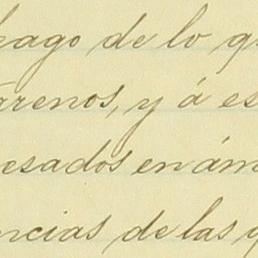 hago de lo qu
árenos, y á es
esados en ám
ncias de las q